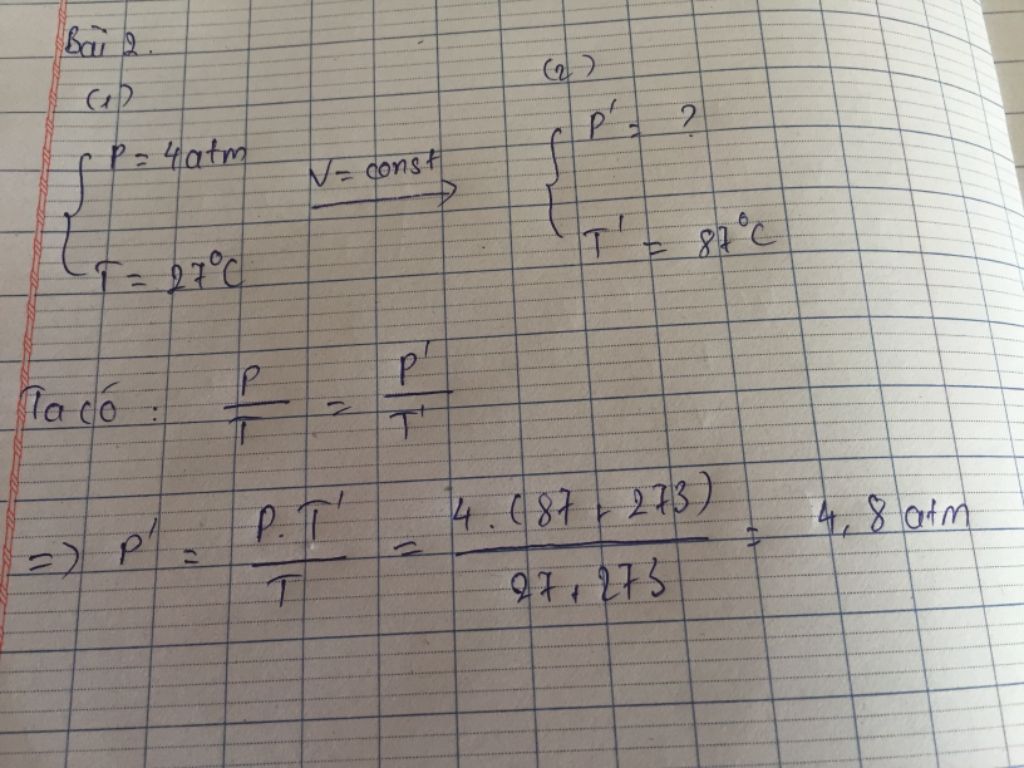 Bài 2.
(1) (2)
P = 4atm V = const P' = ?
T = 27°C T' = 87°C
Ta có : P/T = P'/T'
=> P' = P.T'/T = 4.(87+273)/27+273 = 4,8 atm